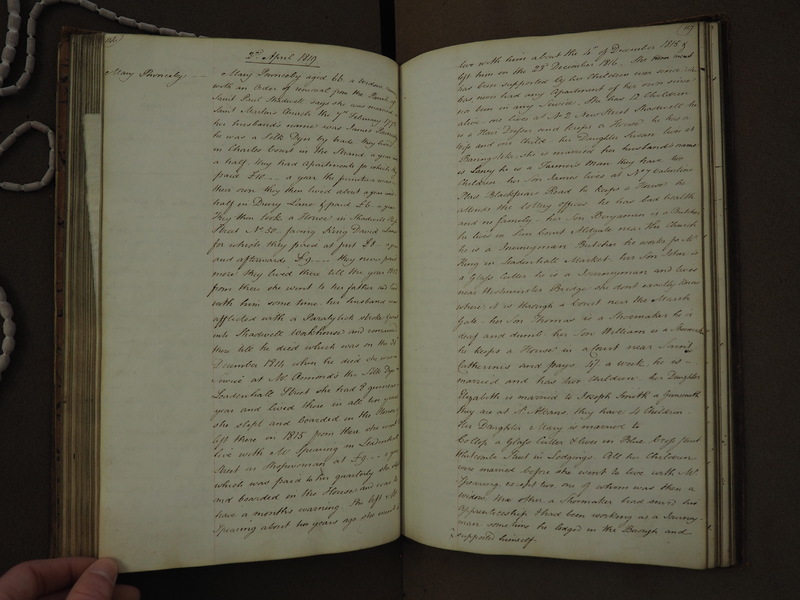 2nd April 1819
Mary Inwersly
Mary Inwersly aged 66. a widow
with an Order of removal from the Parish of
Saint Paul Shadwell says she was married at
Saint Martins Church the 7th February
her husbands name was James
he was a Silk Dyer by trade they lived
in Charles Court in the Strand a year and
a half. they had apartments for which they
paid £10 a year the furniture was
their own they then lived about a year and
half in Drury Lane & paid £6 a year
They then took a House in Shadwell High
Street No 50. facing King David Lane
for which they paid at first £8 a year
and afterwards £9 they never paid
more they lived there till the year
from there she went to her father and lived
with him some time. her husband was
afflicted with a Paralytick stroke & went
into Shadwell Workhouse and remained
there till he died which was on the
December 1814, when he died she was
at Mr the Silk Dyer
Leadenhall Street she had 8 guineas
year and lived there in all ten years
she slept and boarded in the House
left there in 1815 from there she went
live with Mr Spearing in Leadenhall
Street as Shopwoman at £9 a year
which was paid to her quarterly she slept
and boarded in the House and was to
have a months warning. she left Mr
Spearing about two years ago she went to
live with him about the 4th of December 1815 &
left him on the 23d December 1816. She
has been supported by her Children ever since
has never had any Apartment of her own since
nor been in any Service. She has 10 Children
alive. one lives at No 2 New Street Shadwell he
is a Hair Dresser and keeps a House he has a
wife and one Child. her Daughter Susan lives at
Basingstoke she is married her husbands name
is Laney he is a Farmers Man they have two
Children her Son James lives at No 7
Place Blackfriars Road he keeps a House he
attends the Lottery offices he has bad health
and no family. her Son Benjamin is a Butcher
he lives in Sun Court Aldgate near the Church
he is a Journeyman Butcher he works for Mr
King in Leadenhall Market. her Son John is
a Glass Cutter he is a Journeyman and lives
near Westminster Bridge she dont exactly know
where it is through a Court near the Marsh
Gate. her Son Thomas is a Shoemaker he is
deaf and dumb her Son William is a Shoemaker
he keeps a House in a Court near Saint
Catherines and pays 4/ a week he is
married and has two Children. her Daughter
Elizabeth is married to Joseph Smith a Gunsmith
they are at St Albans. they have 4 Children
Her Daughter Mary is married to
a Glass Cutter & lives in Blue Court
Street in Lodgings. All her Children
were married before she went to live with Mr
Spearing except two one of whom was then a
widow the other a Shoemaker had served his
apprenticeship & had been working as a Journey-
man some time he lodged in the Borough and
supported himself